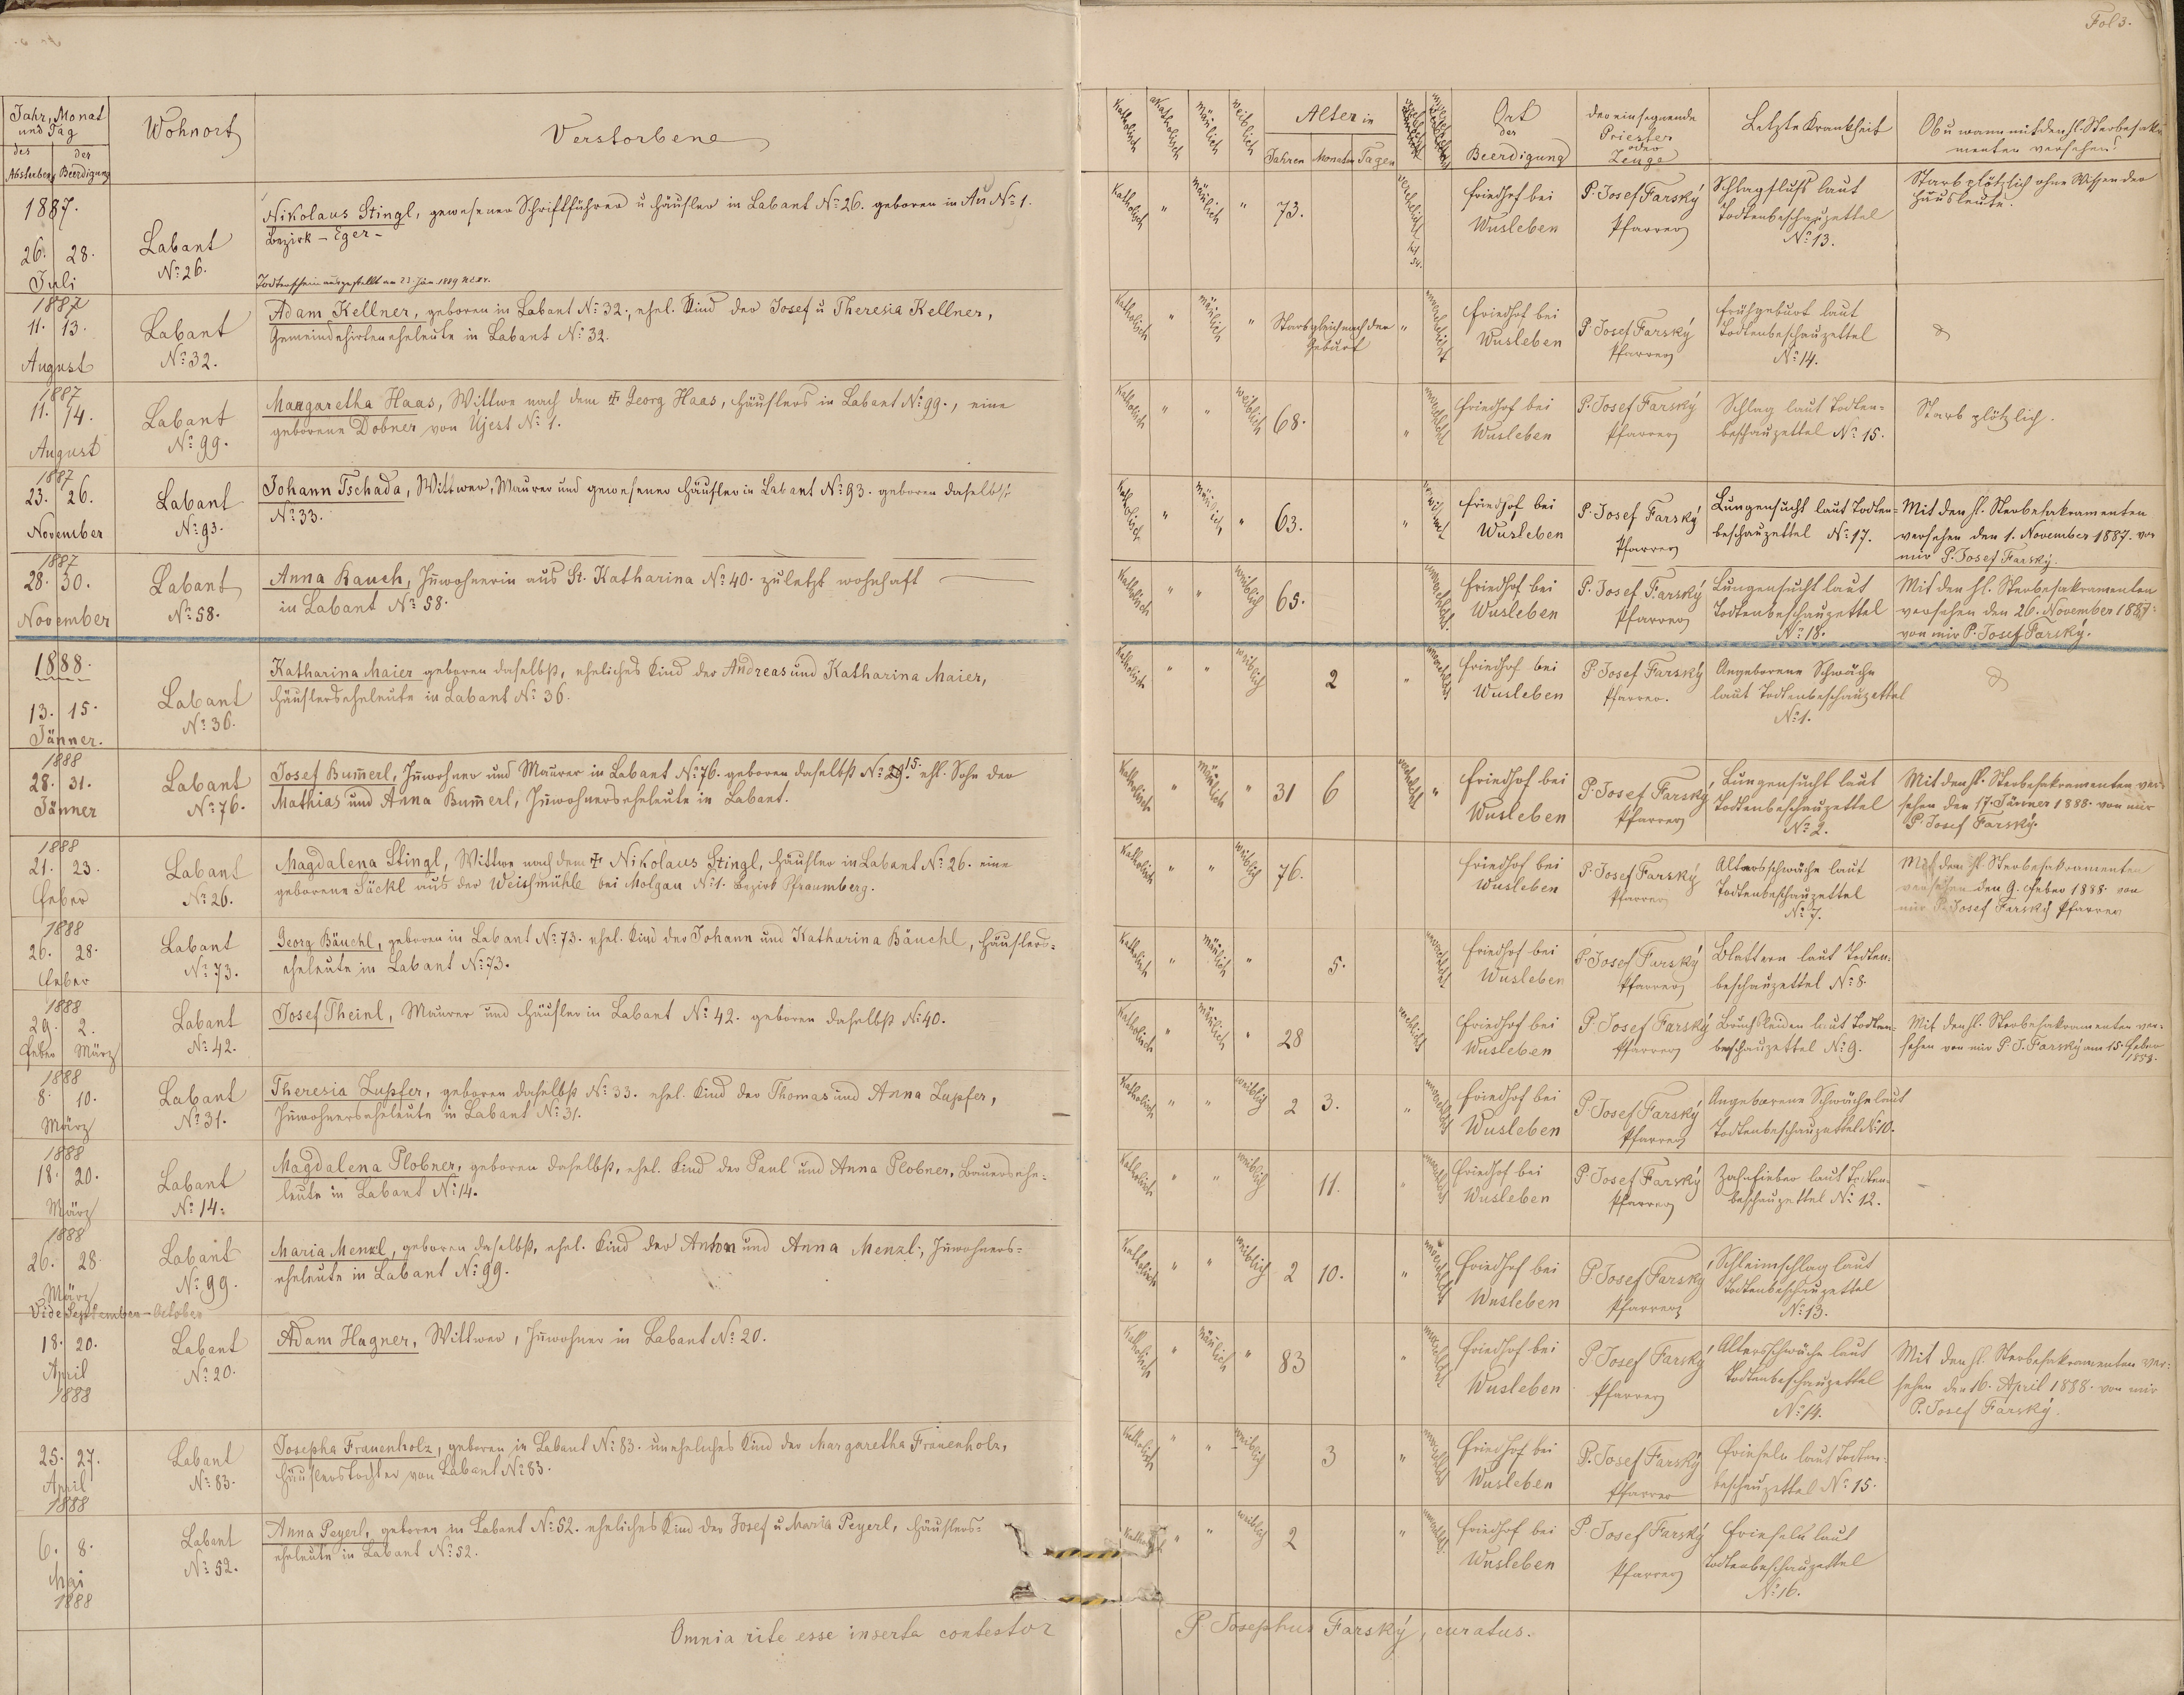 Fol 3.
Jahr, Monat
und Tag
des
der
Ablebens
Beerdigung
Wohnort
Verstorbene
Katholisch
akatholisch
mänlich
weiblich
Alter in
Jahren
Monaten
Tagen
Ort
der
Beerdigung
der einsegnende
Priester
oder
Zeuge
Letzte Krankheit
Ob u wann mit den hl. Sterbesakra
menten versehen?
1887.
26. 28.
Juli
Labant
No 26.
Nikolaus Stingl, gewesener Schriftführer u Häusler in Labant No 26. geboren in Au No 1.
Bezirk - Eger -
Todtenschein ausgestellt am
Katholisch " mänlich " 73.
verehelicht
Friedhof bei
Wusleben
P. Josef Farský
Pfarrer
Schlagfluß laut
Todtenbeschauzettel
No 13.
Starb plötzlich ohne Wissen der
Hausleute.
1887
11. 13.
August
Labant
No 32.
Adam Kellner, geboren in Labant No 32., ehel. Kind der Josef u Theresia Kellner,
Gemeindehirteneheleute in Labant No 32.
Katholisch " mänlich " Starb gleich nach der "
Geburt
Friedhof bei
Wusleben
P. Josef Farský
Pfarrer
Frühgeburt laut
Todtenbeschauzettel
No 14.
1887
11. 14.
August
Labant
No 99.
Margaretha Haas, Wittwe nach dem † Georg Haas, Häuslers in Labant No 99., eine
geborene Dobner von Ujest No 1.
Katholisch " " weiblich 68. "
Friedhof bei
Wusleben
P. Josef Farský
Pfarrer
Schlag laut Todten-
beschauzettel No 15.
Starb plötzlich.
1887
23. 26.
November
Labant
No 93.
Johann Tschada, Wittwer, Maurer und gewesener Häusler in Labant No 93. geboren daselbst
No 33.
Katholisch " mänlich " 63. "
Friedhof bei
Wusleben
P. Josef Farský
Pfarrer
Lungensucht laut Todten-
beschauzettel No 17.
Mit den hl. Sterbesakramenten
versehen den 1. November 1887. von
mir P. Josef Farský.
1887
28. 30.
November
Labant
No 58.
Anna Rauch, Inwohnerin aus St. Katharina No 40. zuletzt wohnhaft
in Labant No 58.
Katholisch " " weiblich 65.
Friedhof bei
Wusleben
P. Josef Farský
Pfarrer
Lungensucht laut
Todtenbeschauzettel
No 18.
Mit den hl. Sterbesakramenten
versehen den 26. November 1887.
von mir P. Josef Farský.
1888.
13. 15.
Jänner.
Labant
No 36.
Katharina Maier geboren daselbst, eheliches Kind der Andreas und Katharina Maier,
Häuslerseheleute in Labant No 36.
Katholisch " " weiblich 2 "
Friedhof bei
Wusleben
P. Josef Farský
Pfarrer.
Angeborene Schwäche
laut Todtenbeschauzettel
No 1.
1888
28. 31.
Jänner
Labant
No 76.
Josef Bum̅erl, Inwohner und Maurer in Labant No 76. geboren daselbst No 29. 15. ehl. Sohn der
Mathias und Anna Bum̅erl, Inwohnerseheleute in Labant.
Katholisch " mänlich " 31 6 verehelicht "
Friedhof bei
Wusleben
P. Josef Farský
Pfarrer
Lungensucht laut
Todtenbeschauzettel
No 2.
Mit den hl. Sterbesakramenten ver-
sehen den 17. Jänner 1888. von mir
P. Josef Farský.
1888
21. 23.
Feber
Labant
No 26.
Magdalena Stingl, Wittwe nach dem † Nikolaus Stingl, Häusler in Labant No 26. eine
geborene Säckl aus der Weißmühle bei Molgau No 1. Bezirk Pfraumberg.
Katholisch " " weiblich 76.
Friedhof bei
Wusleben
P. Josef Farský
Pfarrer
Altersschwäche laut
Todtenbeschauzettel
No 7.
Mit den hl. Sterbesakramenten
versehen den 9. Feber 1888. von
mir P. Josef Farský Pfarrer
1888
26. 28.
Feber
Labant
No 73.
Georg Bäuchl, geboren in Labant No 73. ehel. Kind der Johann und Katharina Bäuchl, Häuslers-
eheleute in Labant No 73.
Katholisch " mänlich " 5.
Friedhof bei
Wusleben
P. Josef Farský
Pfarrer
Blattern laut Todten-
beschauzettel No 8.
1888
29. 2.
Feber März
Labant
No 42.
Josef Theinl, Maurer und Häusler in Labant No 42. geboren daselbst No 40.
Katholisch " mänlich " 28 verehelicht
Friedhof bei
Wusleben
P. Josef Farský
Pfarrer
Bruchleiden laut Todten-
beschauzettel No 9.
Mit den hl. Sterbesakramenten ver-
sehen von mir P. J. Farský am 15. Feber
1888.
1888
8. 10.
März
Labant
No 31.
Theresia Zupfer, geboren daselbst No 33. ehel. Kind der Thomas und Anna Zupfer,
Inwohnerseheleute in Labant No 31.
Katholisch " " weiblich 2 3. "
Friedhof bei
Wusleben
P. Josef Farský
Pfarrer
Angeborene Schwäche laut
Todtenbeschauzettel No 10.
1888
18. 20.
März
Labant
No 14.
Magdalena Plobner, geboren daselbst, ehel. Kind der Paul und Anna Plobner, Bauersehe-
leute in Labant No 14.
Katholisch " " weiblich 11. "
Friedhof bei
Wusleben
P. Josef Farský
Pfarrer
Zahnfieber laut Todten-
beschauzettel No 12.
1888
26. 28.
März
Labant
No 99.
Maria Menzl, geboren daselbst, ehel. Kind der Anton und Anna Menzl, Inwohners-
eheleute in Labant No 99.
Katholisch " " weiblich 2 10. "
Friedhof bei
Wusleben
P. Josef Farský
Pfarrer
Schleimschlag laut
Todtenbeschauzettel
No 13.
Vide September - October
18. 20.
April
1888
Labant
No 20.
Adam Hagner, Wittwer, Inwohner in Labant No 20.
Katholisch " mänlich " 83 "
Friedhof bei
Wusleben
P. Josef Farský
Pfarrer
Altersschwäche laut
Todtenbeschauzettel
No 14.
Mit den hl. Sterbesakramenten ver-
sehen den 16. April 1888. von mir
P. Josef Farský.
25. 27.
April
1888
Labant
No 83.
Josepha Frauenholz, geboren in Labant No 83. uneheliches Kind der Margaretha Frauenholz,
Häuslerstochter von Labant No 83.
Katholisch " " weiblich 3 "
Friedhof bei
Wusleben
P. Josef Farský
Pfarrer
Frieseln laut Todten-
beschauzettel No 15.
6. 8.
Mai
1888
Labant
No 52.
Anna Peyerl, geboren in Labant No 52. eheliches Kind der Josef u Maria Peyerl, Häuslers-
eheleute in Labant No 52.
Katholisch " " weiblich 2 "
Friedhof bei
Wusleben
P. Josef Farský
Pfarrer
Frieseln laut
Todtenbeschauzettel
No 16.
Omnia rite esse inserta contestor
P. Josephus Farský, curatus.